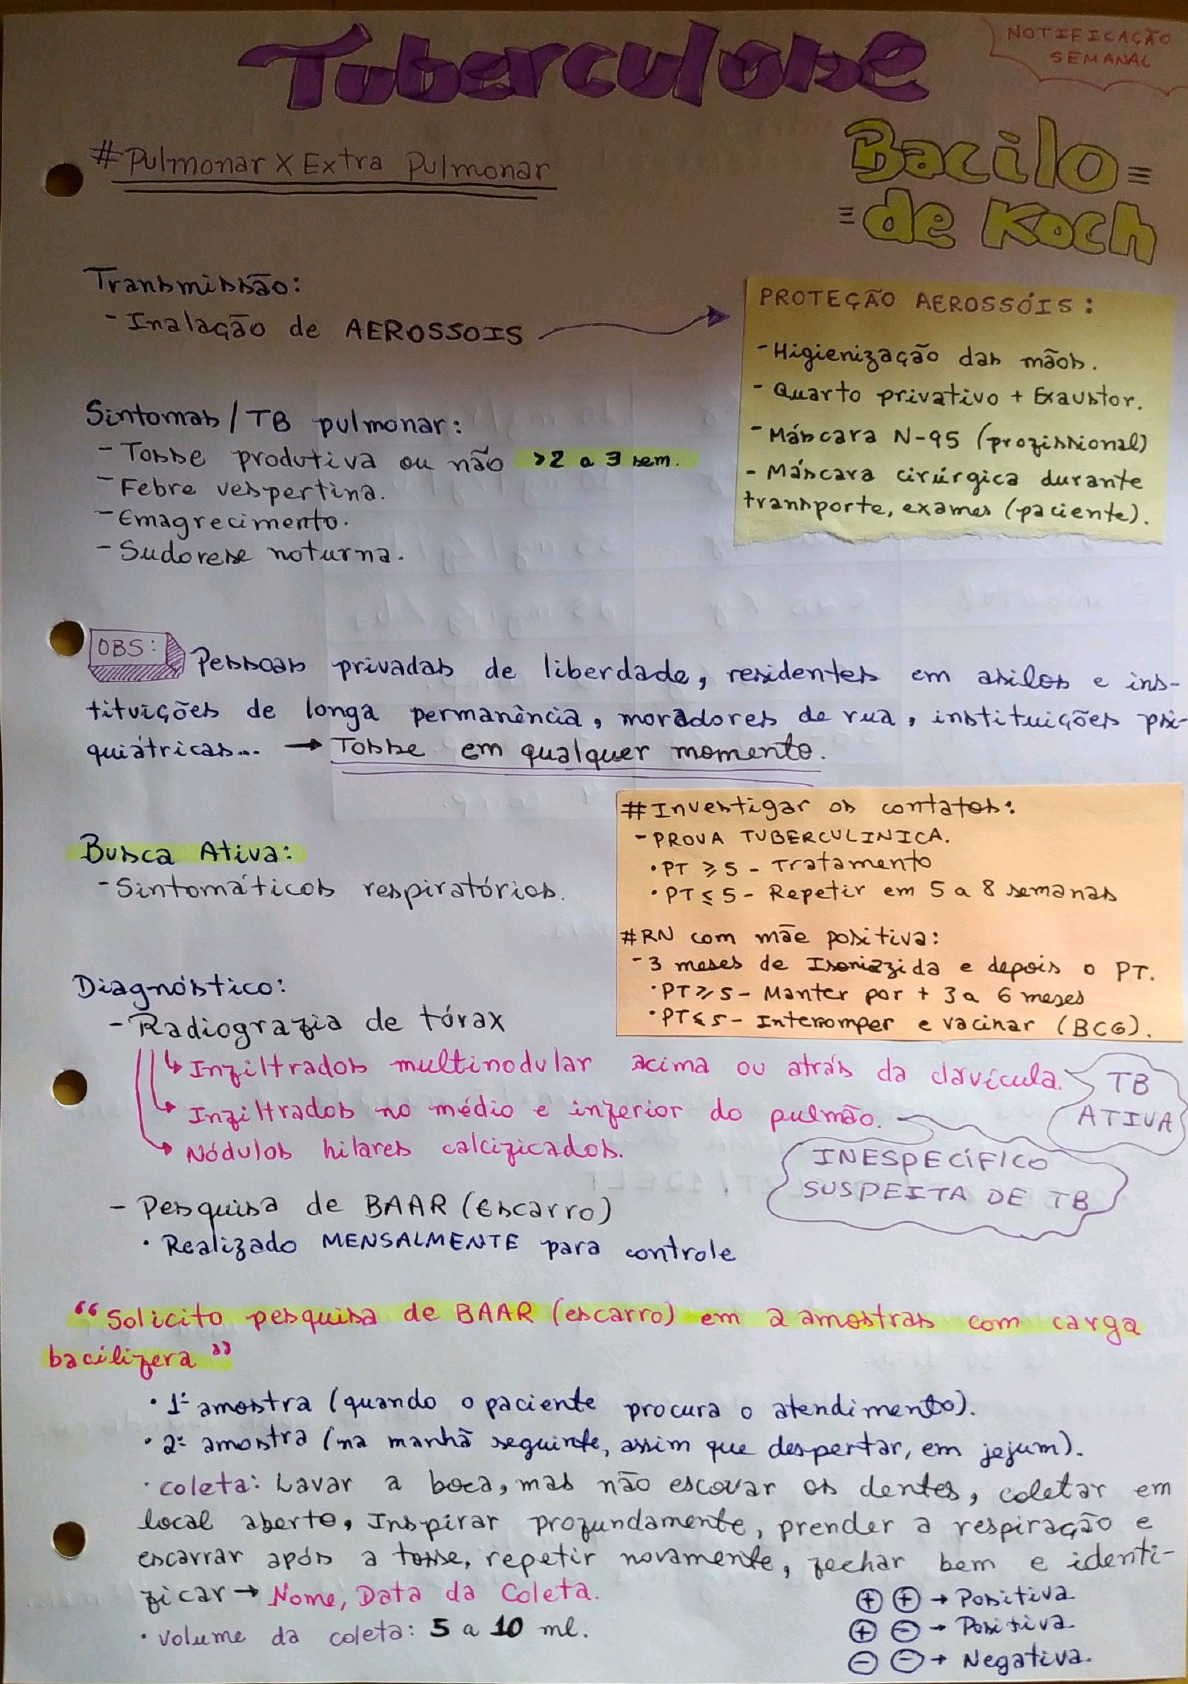 Tuberculose
NOTIFICAÇÃO
SEMANAL
Bacilo
de Koch
#Pulmonar X Extra Pulmonar
Transmissão:
- Inalação de AEROSSOIS
PROTEÇÃO AEROSSÓIS:
- Higienização das mãos.
- Quarto privativo + Exaustor.
- Máscara N-95 (profissional)
- Máscara cirúrgica durante
transporte, exames (paciente).
Sintomas / TB pulmonar:
- Tosse produtiva ou não >2 a 3 sem.
- Febre vespertina.
- Emagrecimento.
- Sudorese noturna.
OBS: Pessoas privadas de liberdade, residentes em asilos e ins-
tituições de longa permanência, moradores de rua, instituições psi-
quiátricas... → Tosse em qualquer momento.
Busca Ativa:
- Sintomáticos respiratórios.
#Investigar os contatos:
- PROVA TUBERCULINICA.
• PT ≥ 5 - Tratamento
• PT ≤ 5 - Repetir em 5 a 8 semanas
#RN com mãe positiva:
- 3 meses de Isoniazida e depois o PT.
• PT ≥ 5 - Manter por + 3 a 6 meses
• PT ≤ 5 - Interromper e vacinar (BCG).
Diagnóstico:
- Radiografia de tórax
↳ Infiltrados multinodular acima ou atrás da clavícula.
TB
ATIVA
↳ Infiltrados no médio e inferior do pulmão.
↳ Nódulos hilares calcificados.
INESPECÍFICO
SUSPEITA DE TB
- Pesquisa de BAAR (Escarro)
• Realizado MENSALMENTE para controle
"Solicito pesquisa de BAAR (escarro) em 2 amostras com carga
bacilifera"
• 1ª amostra (quando o paciente procura o atendimento).
• 2ª amostra (na manhã seguinte, assim que despertar, em jejum).
• coleta: Lavar a boca, mas não escovar os dentes, coletar em
local aberto, Inspirar profundamente, prender a respiração e
escarrar após a tosse, repetir novamente, fechar bem e identi-
ficar → Nome, Data da Coleta.
• volume da coleta: 5 a 10 ml.
⊕ ⊕ → Positiva.
⊕ ⊖ → Positiva.
⊖ ⊖ → Negativa.